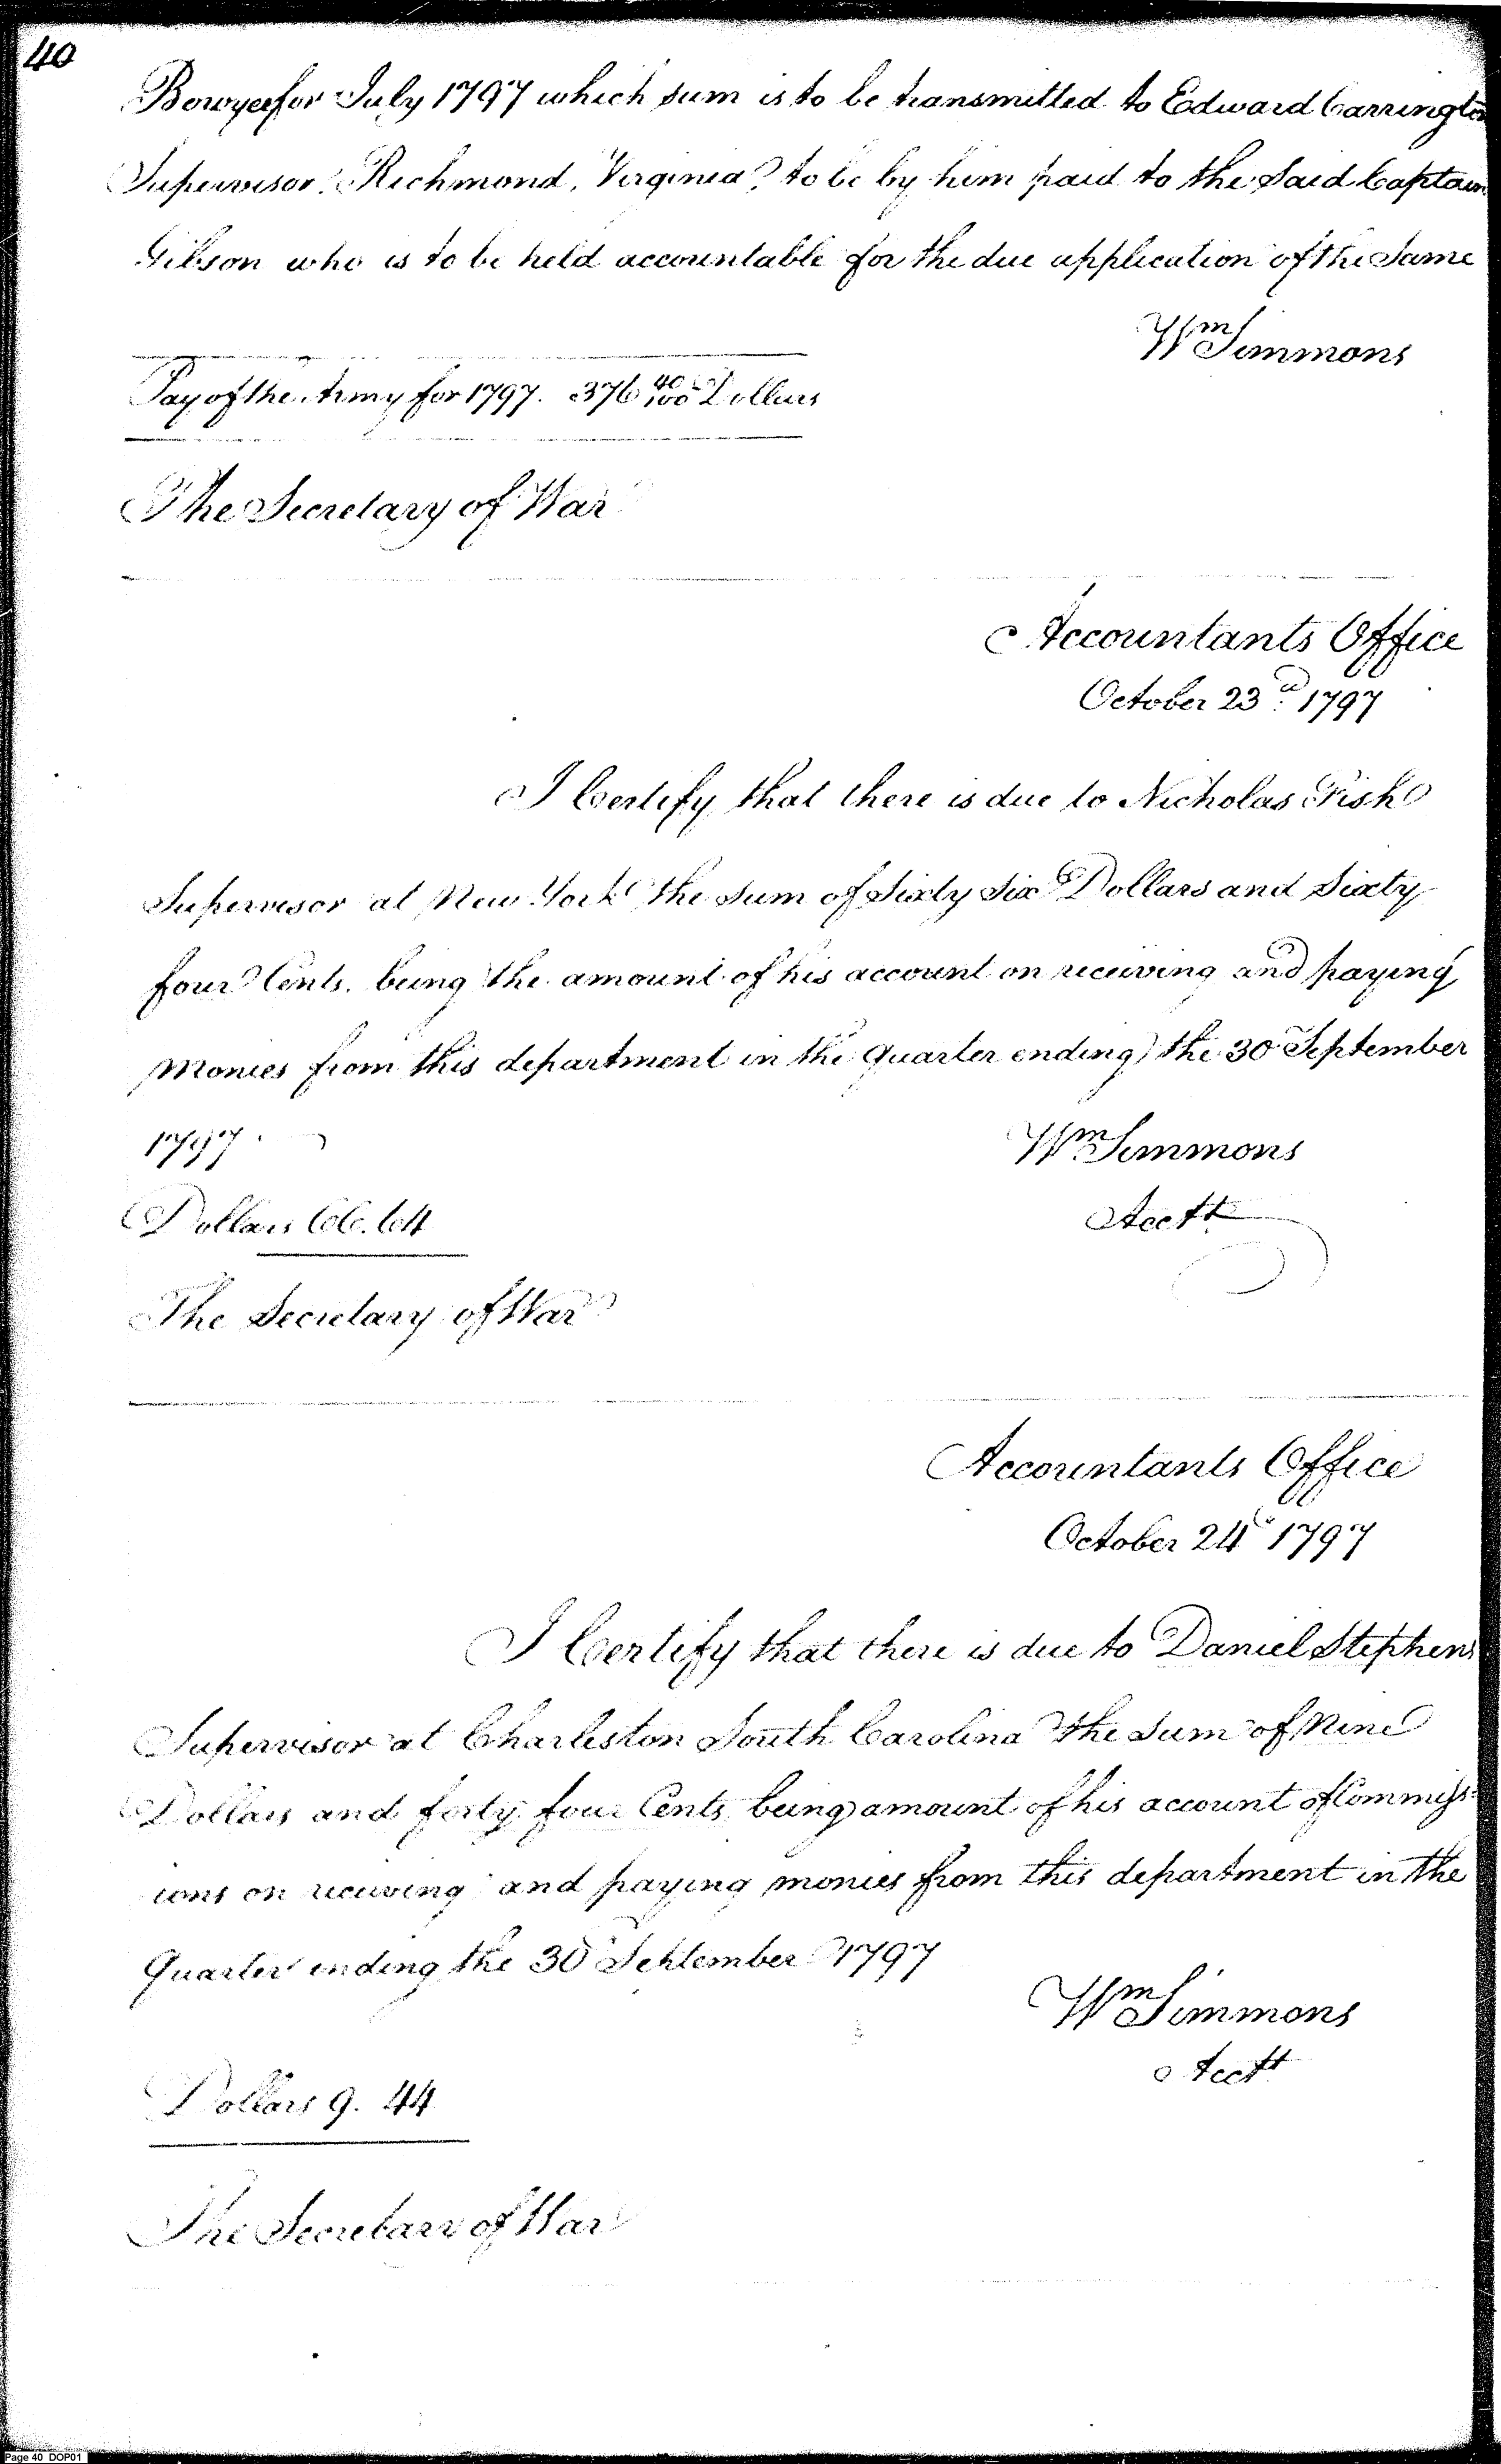 40
Bowyer for July 1797 which sum is to be transmitted to Edward Carrington
Supervisor Richmond, Virginia, to be by him paid to the said Captain
Gibson who is to be held accountable for the due application of the Same
Wm Simmons
Pay of the Army for 1797. 376 40/100 Dollars
The Secretary of War
Accountants Office
October 23d. 1797
I Certify that there is due to Nicholas Fish
Supervisor at New York the sum of Sixty Six Dollars and Sixty
four Cents. being the amount of his account on receiving and paying
Monies from this department in the quarter ending the 30 September
1797.
Wm Simmons
Acctt
Dollars 66.64
The Secretary of War
Accountants Office
October 24th 1797
I Certify that there is due to Daniel Stephens
Supervisor at Charleston South Carolina the Sum of Nine
Dollars and forty four Cents being amount of his account of Commiss-
ions on receiving and paying monies from this department in the
Quarter ending the 30 September 1797
Wm Simmons
Acctt
Dollars 9. 44
The Secretary of War
Page 40 DOP01